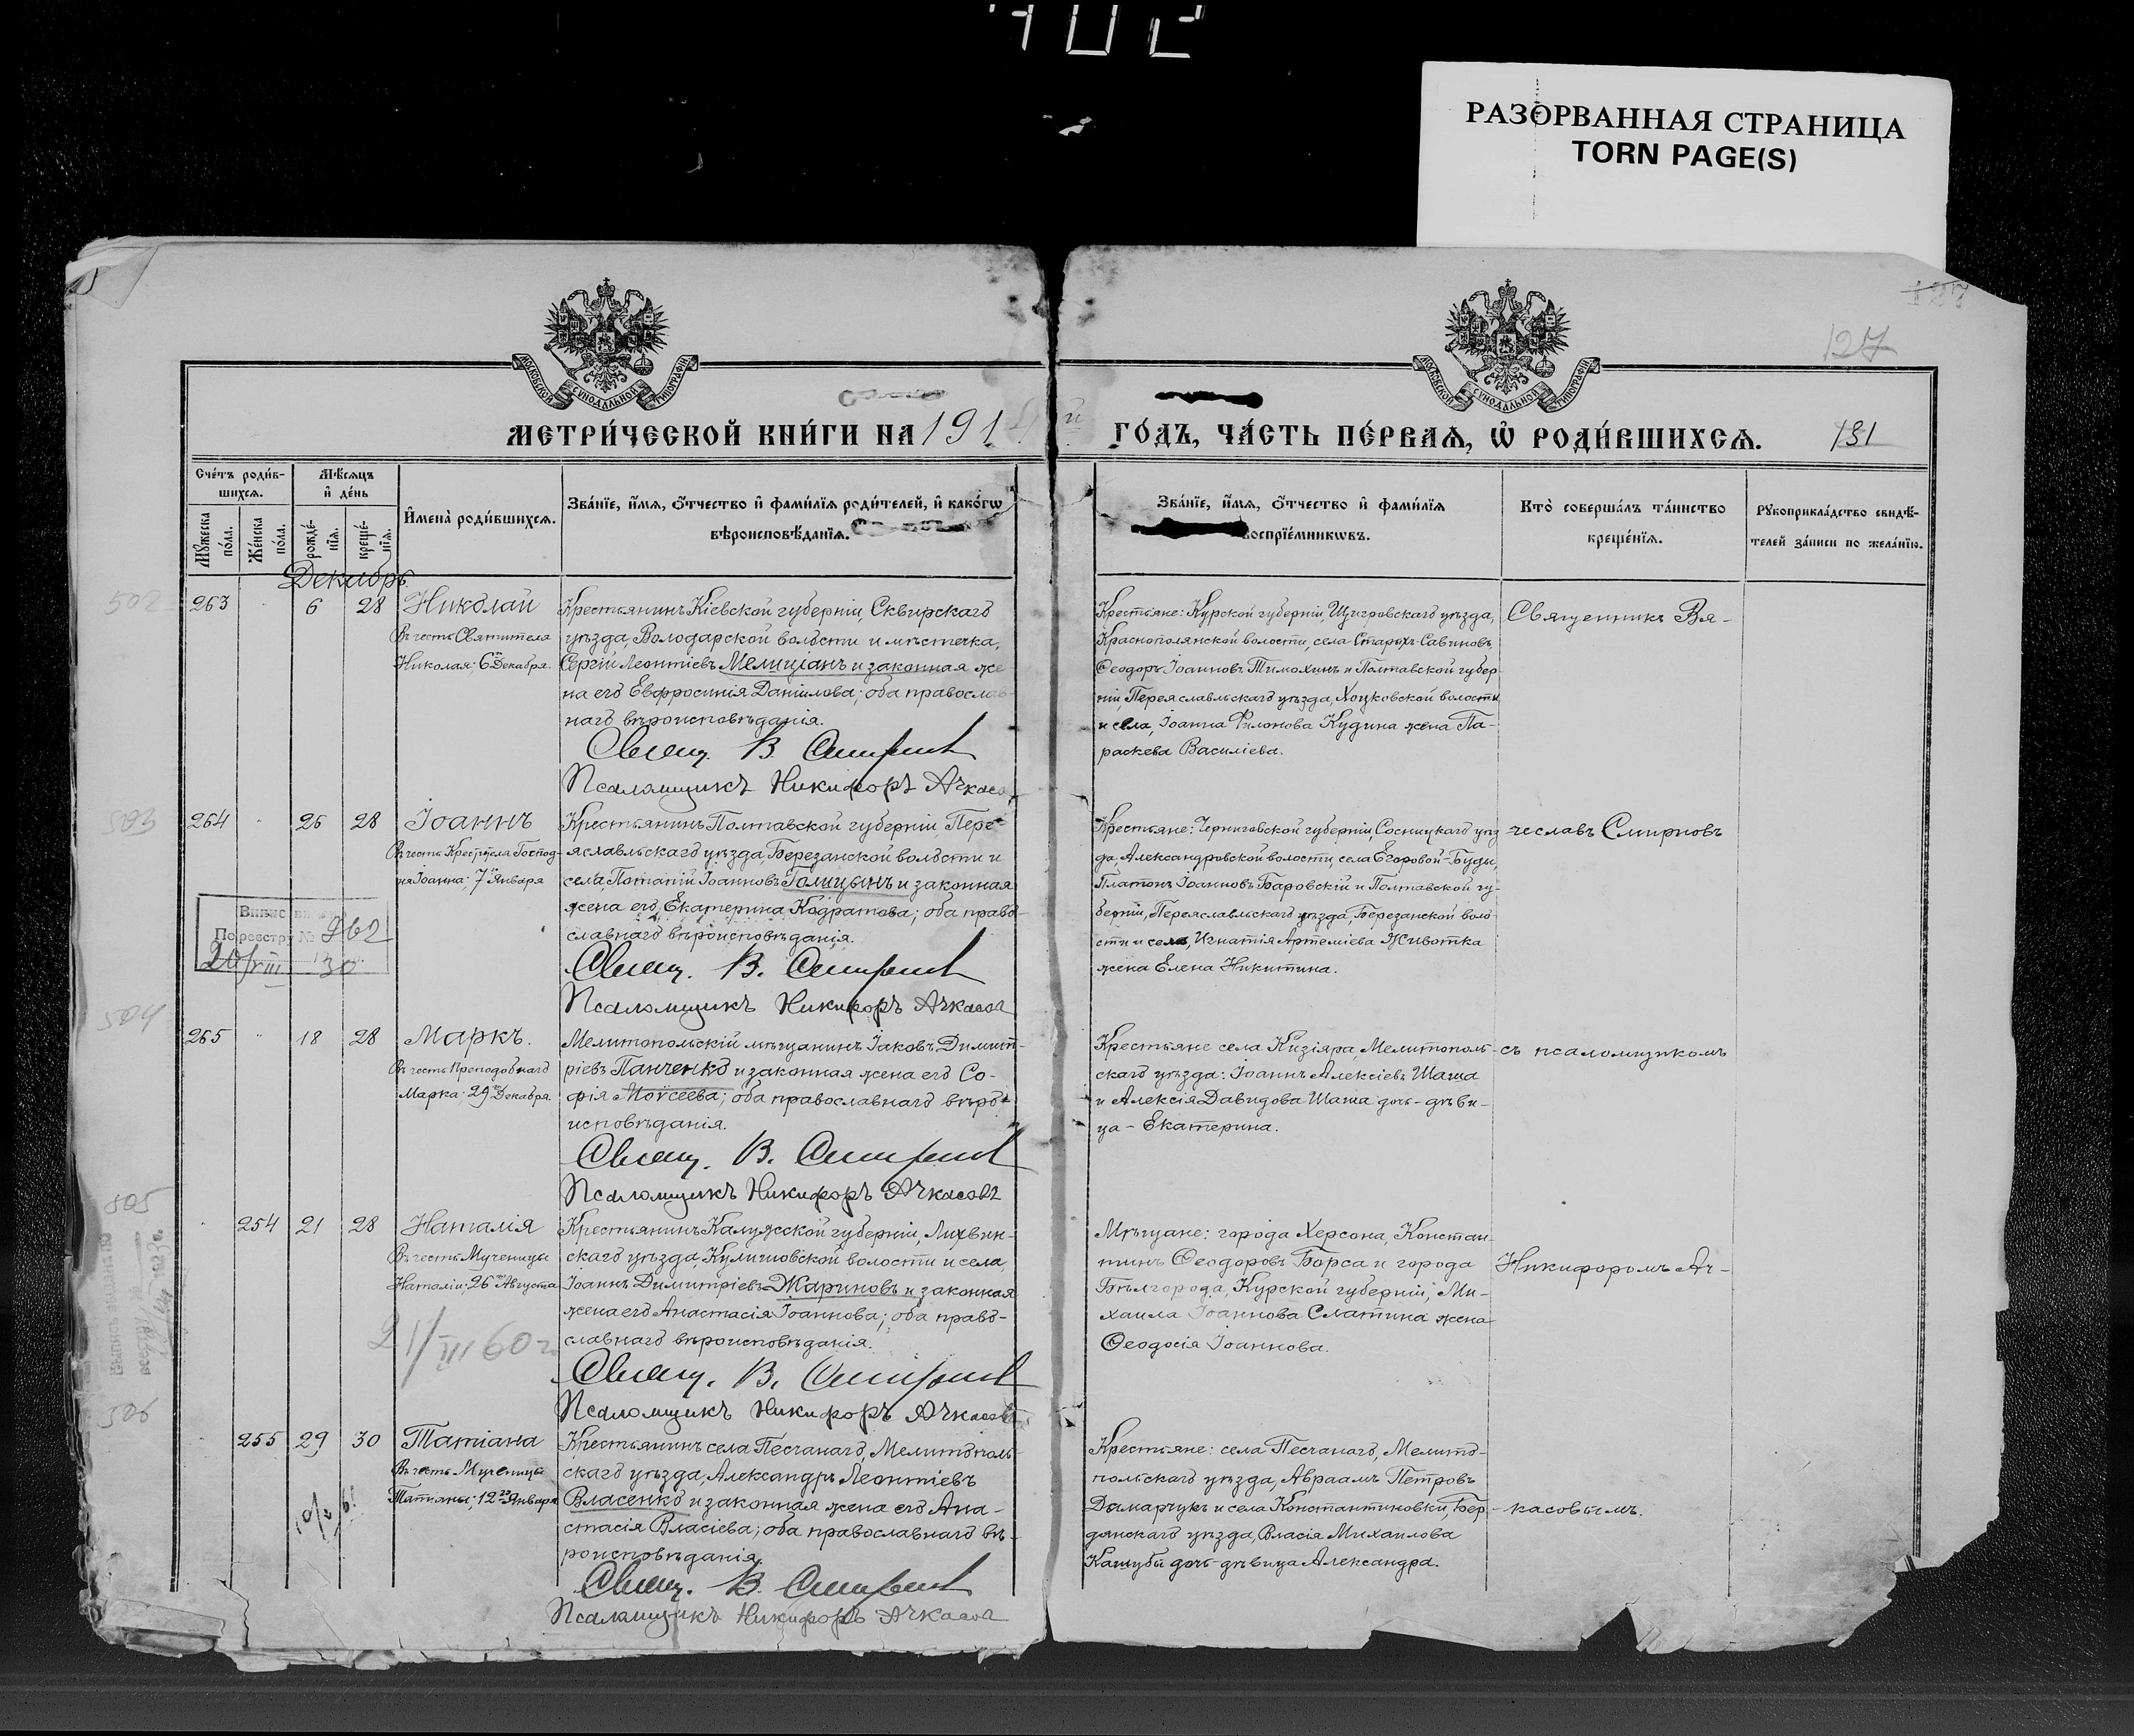 РАЗОРВАННАЯ СТРАНИЦА
TORN PAGE(S)
127
МОСКОВСКОЙ СѴНОДАЛЬНОЙ ТИПОГРАФІИ
МОСКОВСКОЙ СѴНОДАЛЬНОЙ ТИПОГРАФІИ
МЕТРИ́ЧЕСКОЙ КНИ́ГИ НА 1914й ГО́ДЪ, ЧА́СТЬ ПЕ́РВАѦ, Ѽ РОДИ́ВШИХСѦ. 131
Сче́тъ роди́в-
шихсѧ.
Мѣ́сѧцъ
и҆ де́нь
Мꙋ́жеска
по́ла.
Же́нска
по́ла.
рожде́-
нїѧ.
креще́-
нїѧ.
И҆мена̀ роди́вшихсѧ.
Зва́нїе, и҆́мѧ, ѻ҆́тчество и҆ фами́лїѧ роди́телей, и҆ како́гѡ
вѣроисповѣ́данїѧ.
Зва́нїе, и҆́мѧ, ѻ҆́тчество и҆ фами́лїѧ
воспрїе́мникѡвъ.
Кто̀ соверша́лъ та́инство
креще́нїѧ.
Рꙋкоприкла́дство свидѣ́-
телей за́писи по жела́нїю.
Декабрь.
502
263
6
28
Николай
Въ честь Святителя
Николая; 6го Декабря.
Крестьянинъ Кіевской губерніи, Сквирскаго
уѣзда, Володарской волости и мѣстечка,
Сергій Леонтіевъ Мелишіанъ и законная же
на его Евфросинія Даніилова; оба православ-
наго вѣроисповѣданія.
Свящ. В. Смирновъ
Псаломщикъ Никифоръ Ачкасо
Крестьяне: Курской губерніи, Щигровскаго уѣзда,
Краснополянской волости, села Старохъ-Савиновъ,
Ѳеодоръ Іоанновъ Тимохинъ и Полтавской губер
ніи, Переяславльскаго уѣзда, Хоцковской волости
и села, Іоанна Филонова Кудина жена Па-
раскева Василіева.
Священникъ Вя-
503
264
26
28
Іоаннъ
Въ честь Крестителя Господ-
ня Іоанна; 7го Января
По реестру № 962
20/VIII 30
Крестьянинъ Полтавской губерніи Пере-
яславльскаго уѣзда, Березанской волости и
села, Потапій Іоанновъ Голицынъ и законная
жена его, Екатерина Кодратова; оба право-
славнаго вѣроисповѣданія.
Свящ. В. Смирновъ
Псаломщикъ Никифоръ Ачкасов
Крестьяне: Черниговской губерніи, Сосницкаго уѣз
да, Александровской волости, села Егоровой-Буды,
Платонъ Іоанновъ Баровскій и Полтавской гу-
берніи, Переяславльскаго уѣзда, Березанской воло-
сти и села, Игнатія Артеміева Животка
жена Елена Никитина.
чеславъ Смирновъ
504
265
18
28
Маркъ.
Въ честь Преподобнаго
Марка; 29го Декабря.
Мелитопольскій мѣщанинъ Іаковъ Димит-
ріевъ Панченко и законная жена его Со-
фія Моѵсеева; оба православнаго вѣро-
исповѣданія.
Свящ. В. Смирновъ
Псаломщикъ Никифоръ Ачкасовъ
Крестьяне села Кизіяра, Мелитополь-
скаго уѣзда: Іоаннъ Алексіевъ Шаша
и Алексія Давидова Шаша дочь-дѣви-
ца - Екатерина.
съ псаломщикомъ
505
254
21
28
Наталія
Въ честь Мученицы
Наталіи; 26го Августа
21/III 60 г.
Крестьянинъ Калужской губерніи, Лихвин-
скаго уѣзда, Кулишовской волости и села,
Іоаннъ Димитріевъ Жариновъ и законная
жена его Анастасія Іоаннова; оба право-
славнаго вѣроисповѣданія.
Свящ. В. Смирновъ
Псаломщикъ Никифоръ Ачкасов
Мѣщане: города Херсона, Констан-
тинъ Ѳеодоровъ Борса и города
Бѣлгорода, Курской губерніи, Ми-
хаила Іоаннова Слатина жена
Ѳеодосія Іоаннова.
Никифоромъ Ач-
506
255
29
30
Татіана
Въ честь Мученицы
Татіаны; 12го Января
Крестьянинъ села Песчанаго, Мелитополь-
скаго уѣзда, Александръ Леонтіевъ
Власенко и законная жена его Ана-
стасія Власіева; оба православнаго вѣ-
роисповѣданія.
Свящ. В. Смирновъ
Псаломщикъ Никифоръ Ачкасов
Крестьяне: села Песчанаго, Мелито-
польскаго уѣзда, Авраамъ Петровъ
Дамарчукъ и села Константиновки, Бер-
дянскаго уѣзда, Власія Михаилова
Кашубы дочь-дѣвица Александра.
касовымъ.